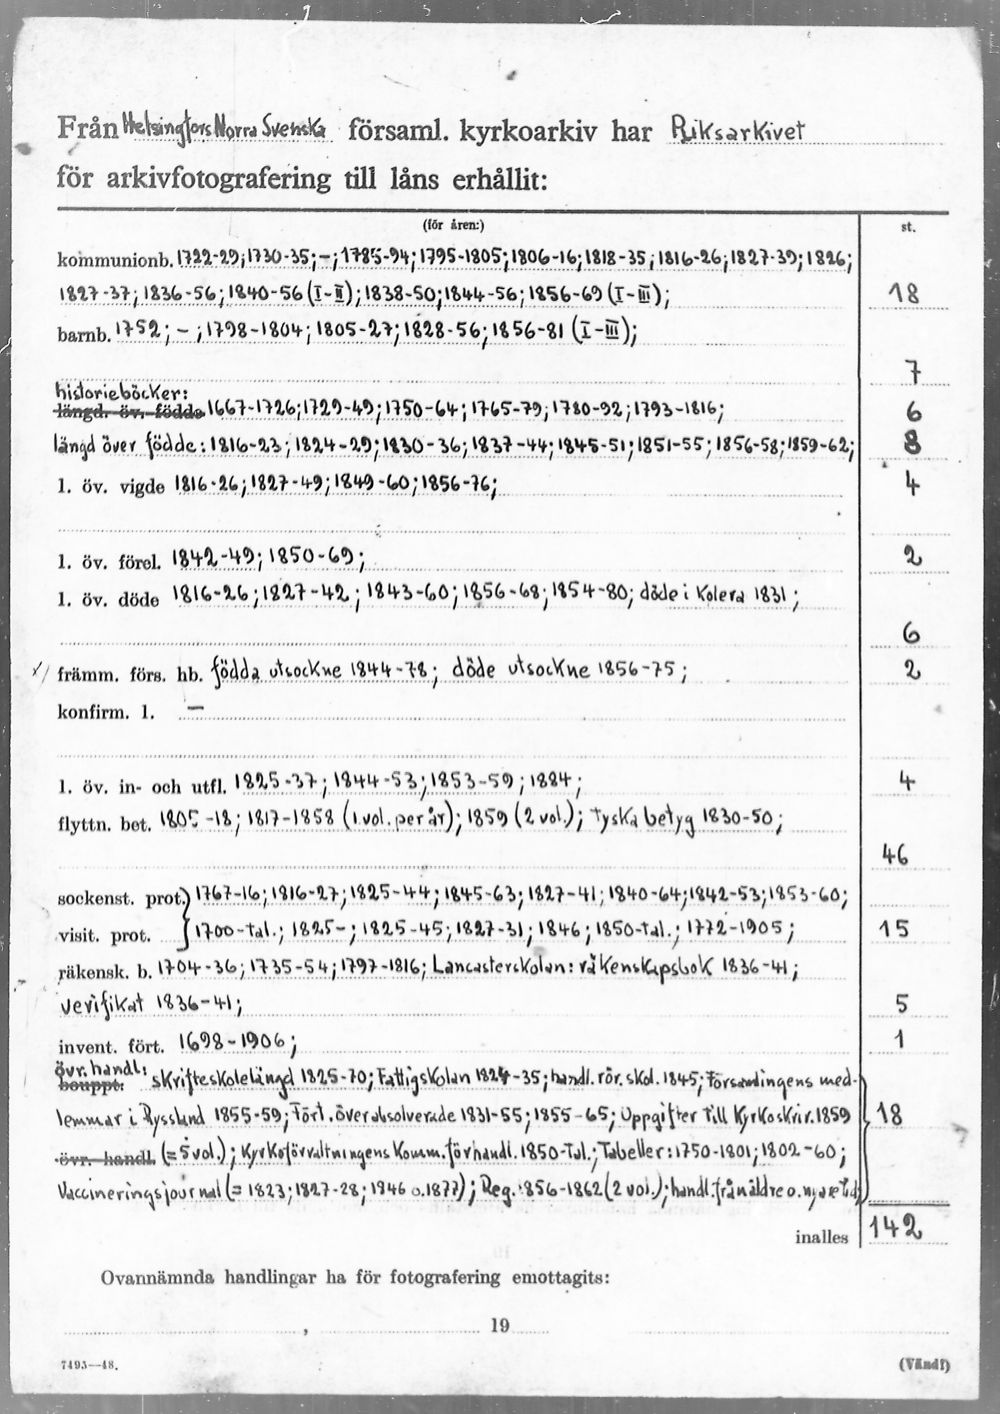 Från Helsingfors Norra Svenska församl. kyrkoarkiv har Riksarkivet
för arkivfotografering till låns erhållit:
(för åren:) st.
kommunionb. 1722-29; 1730-35; -; 1785-94; 1795-1805; 1806-16; 1818-35; 1816-26; 1827-39; 1826;
1827-37; 1836-56; 1840-56 (I-II); 1838-50; 1844-56; 1856-69 (I-III); 18
barnb. 1752; -; 1798-1804; 1805-27; 1828-56; 1856-81 (I-III);
7
historieböcker:
längd. öv. födda 1667-1726; 1729-49; 1750-64; 1765-79; 1780-92; 1793-1816; 6
längd över födde: 1816-23; 1824-29; 1830-36; 1837-44; 1845-51; 1851-55; 1856-58; 1859-62; 8
l. öv. vigde 1816-26; 1827-49; 1849-60; 1856-76; 4
l. öv. förel. 1842-49; 1850-69; 2
l. öv. döde 1816-26; 1827-42; 1843-60; 1856-68; 1854-80; döde i Kolera 1831;
6
x/ främm. förs. hb. födda utsockne 1844-78; döde utsockne 1856-75; 2
konfirm. l. -
l. öv. in- och utfl. 1825-37; 1844-53; 1853-59; 1884; 4
flyttn. bet. 1805-18; 1817-1858 (1 vol. per år); 1859 (2 vol.); Tyska betyg 1830-50;
46
sockenst. prot. } 1767-16; 1816-27; 1825-44; 1845-63; 1827-41; 1840-64; 1842-53; 1853-60;
visit. prot. 1700-tal.; 1825-; 1825-45; 1827-31; 1846; 1850-tal.; 1772-1905; 15
räkensk. b. 1704-36; 1735-54; 1797-1816; Lancasterskolan: räkenskapsbok 1836-41;
verifikat 1836-41; 5
invent. fört. 1698-1906; 1
övr. handl:
bouppt: skrifteskolelängd 1825-70; Fattigskolan 1824-35; handl. rör. skol. 1845; Församlingens med-
lemmar i Ryssland 1855-59; Fört. över absolverade 1831-55; 1855-65; Uppgifter till Kyrkoskriv. 1859 18
övr. handl. (=5 vol.); Kyrkoförvaltningens Komm. förhandl. 1850-Tal.; Tabeller: 1750-1801; 1802-60;
Vaccineringsjournal (= 1823; 1827-28; 1846 o. 1877); Reg. 1856-1862 (2 vol.); handl. från äldre o. nyare tid
inalles 142
Ovannämnda handlingar ha för fotografering emottagits:
, 19
7495—48. (Vänd!)